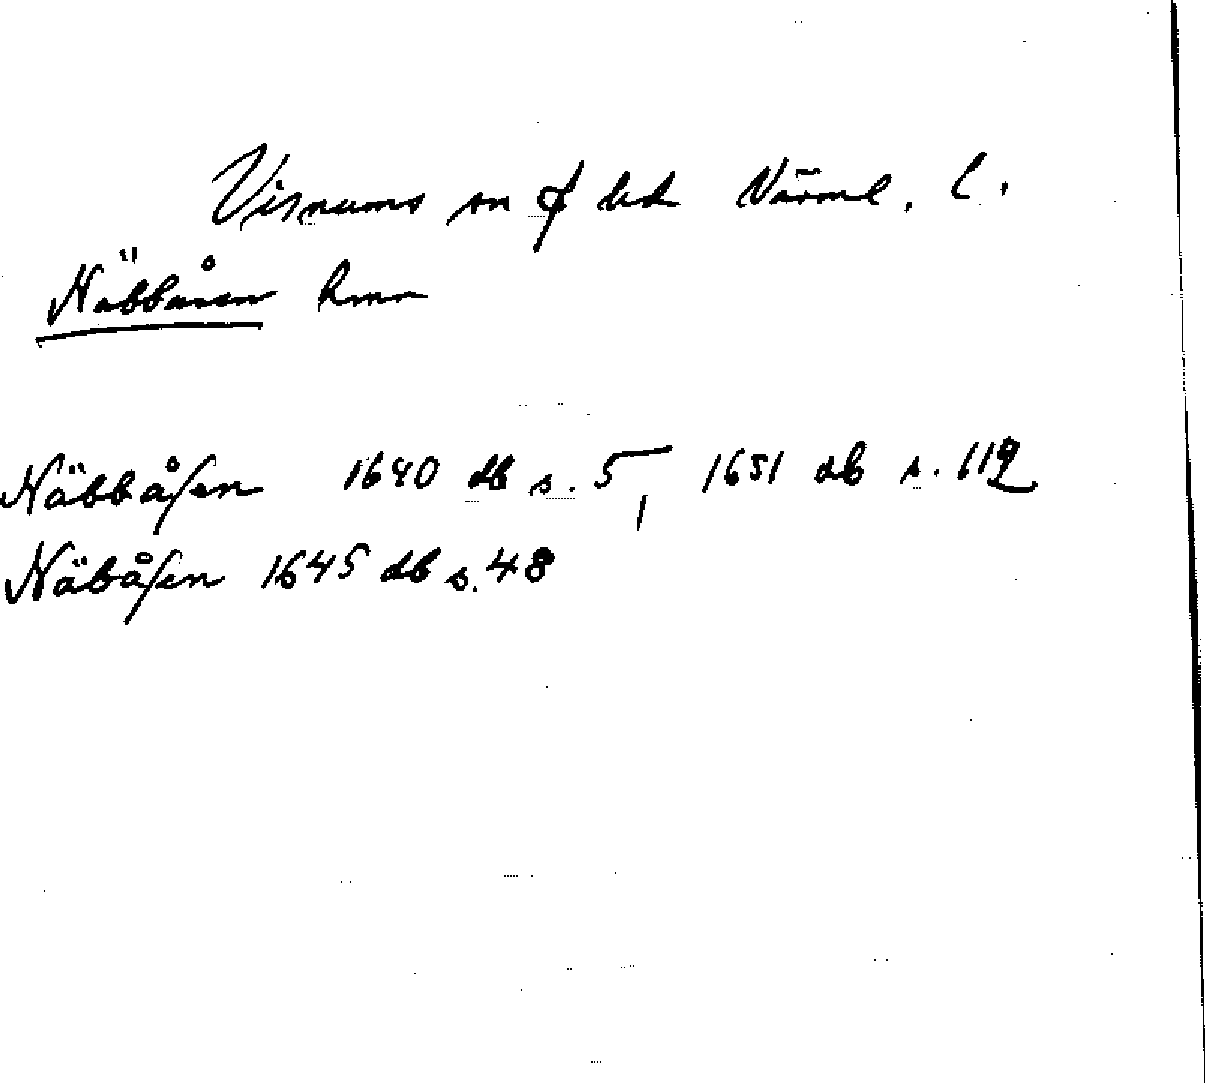 Visnums sn ₵ hd Värml. l.
Näbbåsen hmn
Näbbåsen 1640 db s. 5, 1651 db s. 119
Näbåsen 1645 db s. 48